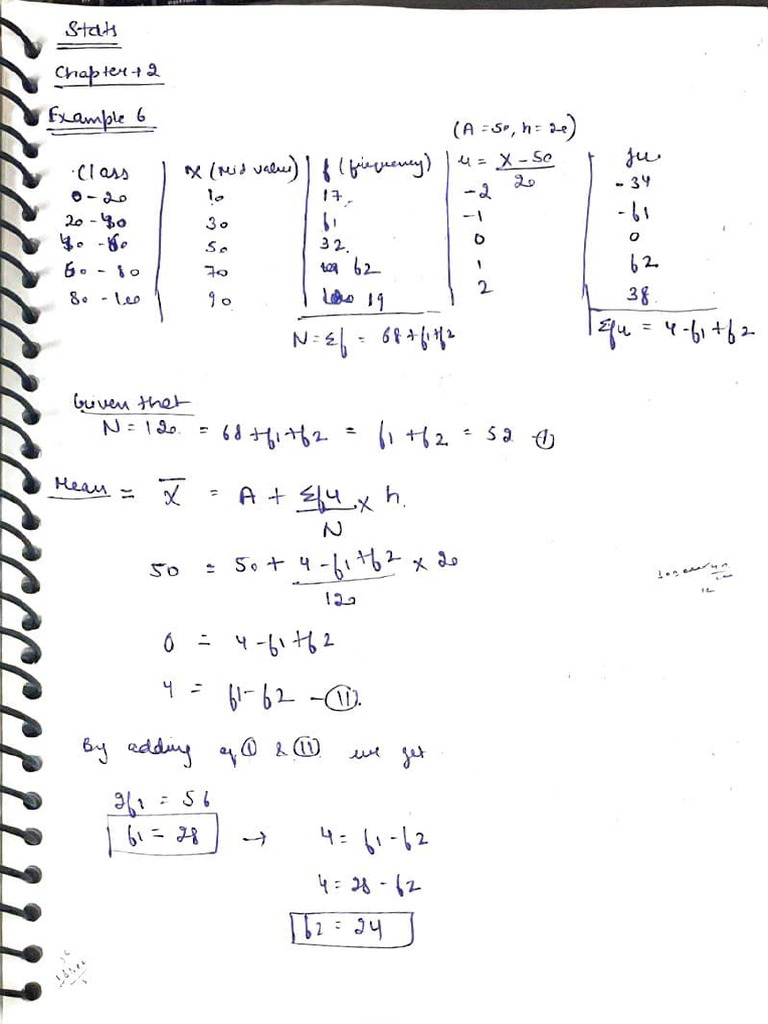 Stats
Chapter + 2
Example 6
(A = 50, h = 20)
Class x (Mid value) f (frequency) u = x - 50 / 20 fu
0 - 20 10 17 -2 -34
20 - 40 30 f1 -1 -f1
40 - 60 50 32 0 0
60 - 80 70 f2 1 f2
80 - 100 90 19 2 38
N = Σf = 68 + f1 + f2 Σfu = 4 - f1 + f2
Given that
N = 120 = 68 + f1 + f2 = f1 + f2 = 52 I
Mean = x̄ = A + Σfu / N × h.
50 = 50 + 4 - f1 + f2 / 120 × 20
0 = 4 - f1 + f2
4 = f1 - f2 - II.
By adding eq I & II we get
2f1 = 56
f1 = 28 → 4 = f1 - f2
4 = 28 - f2
f2 = 24